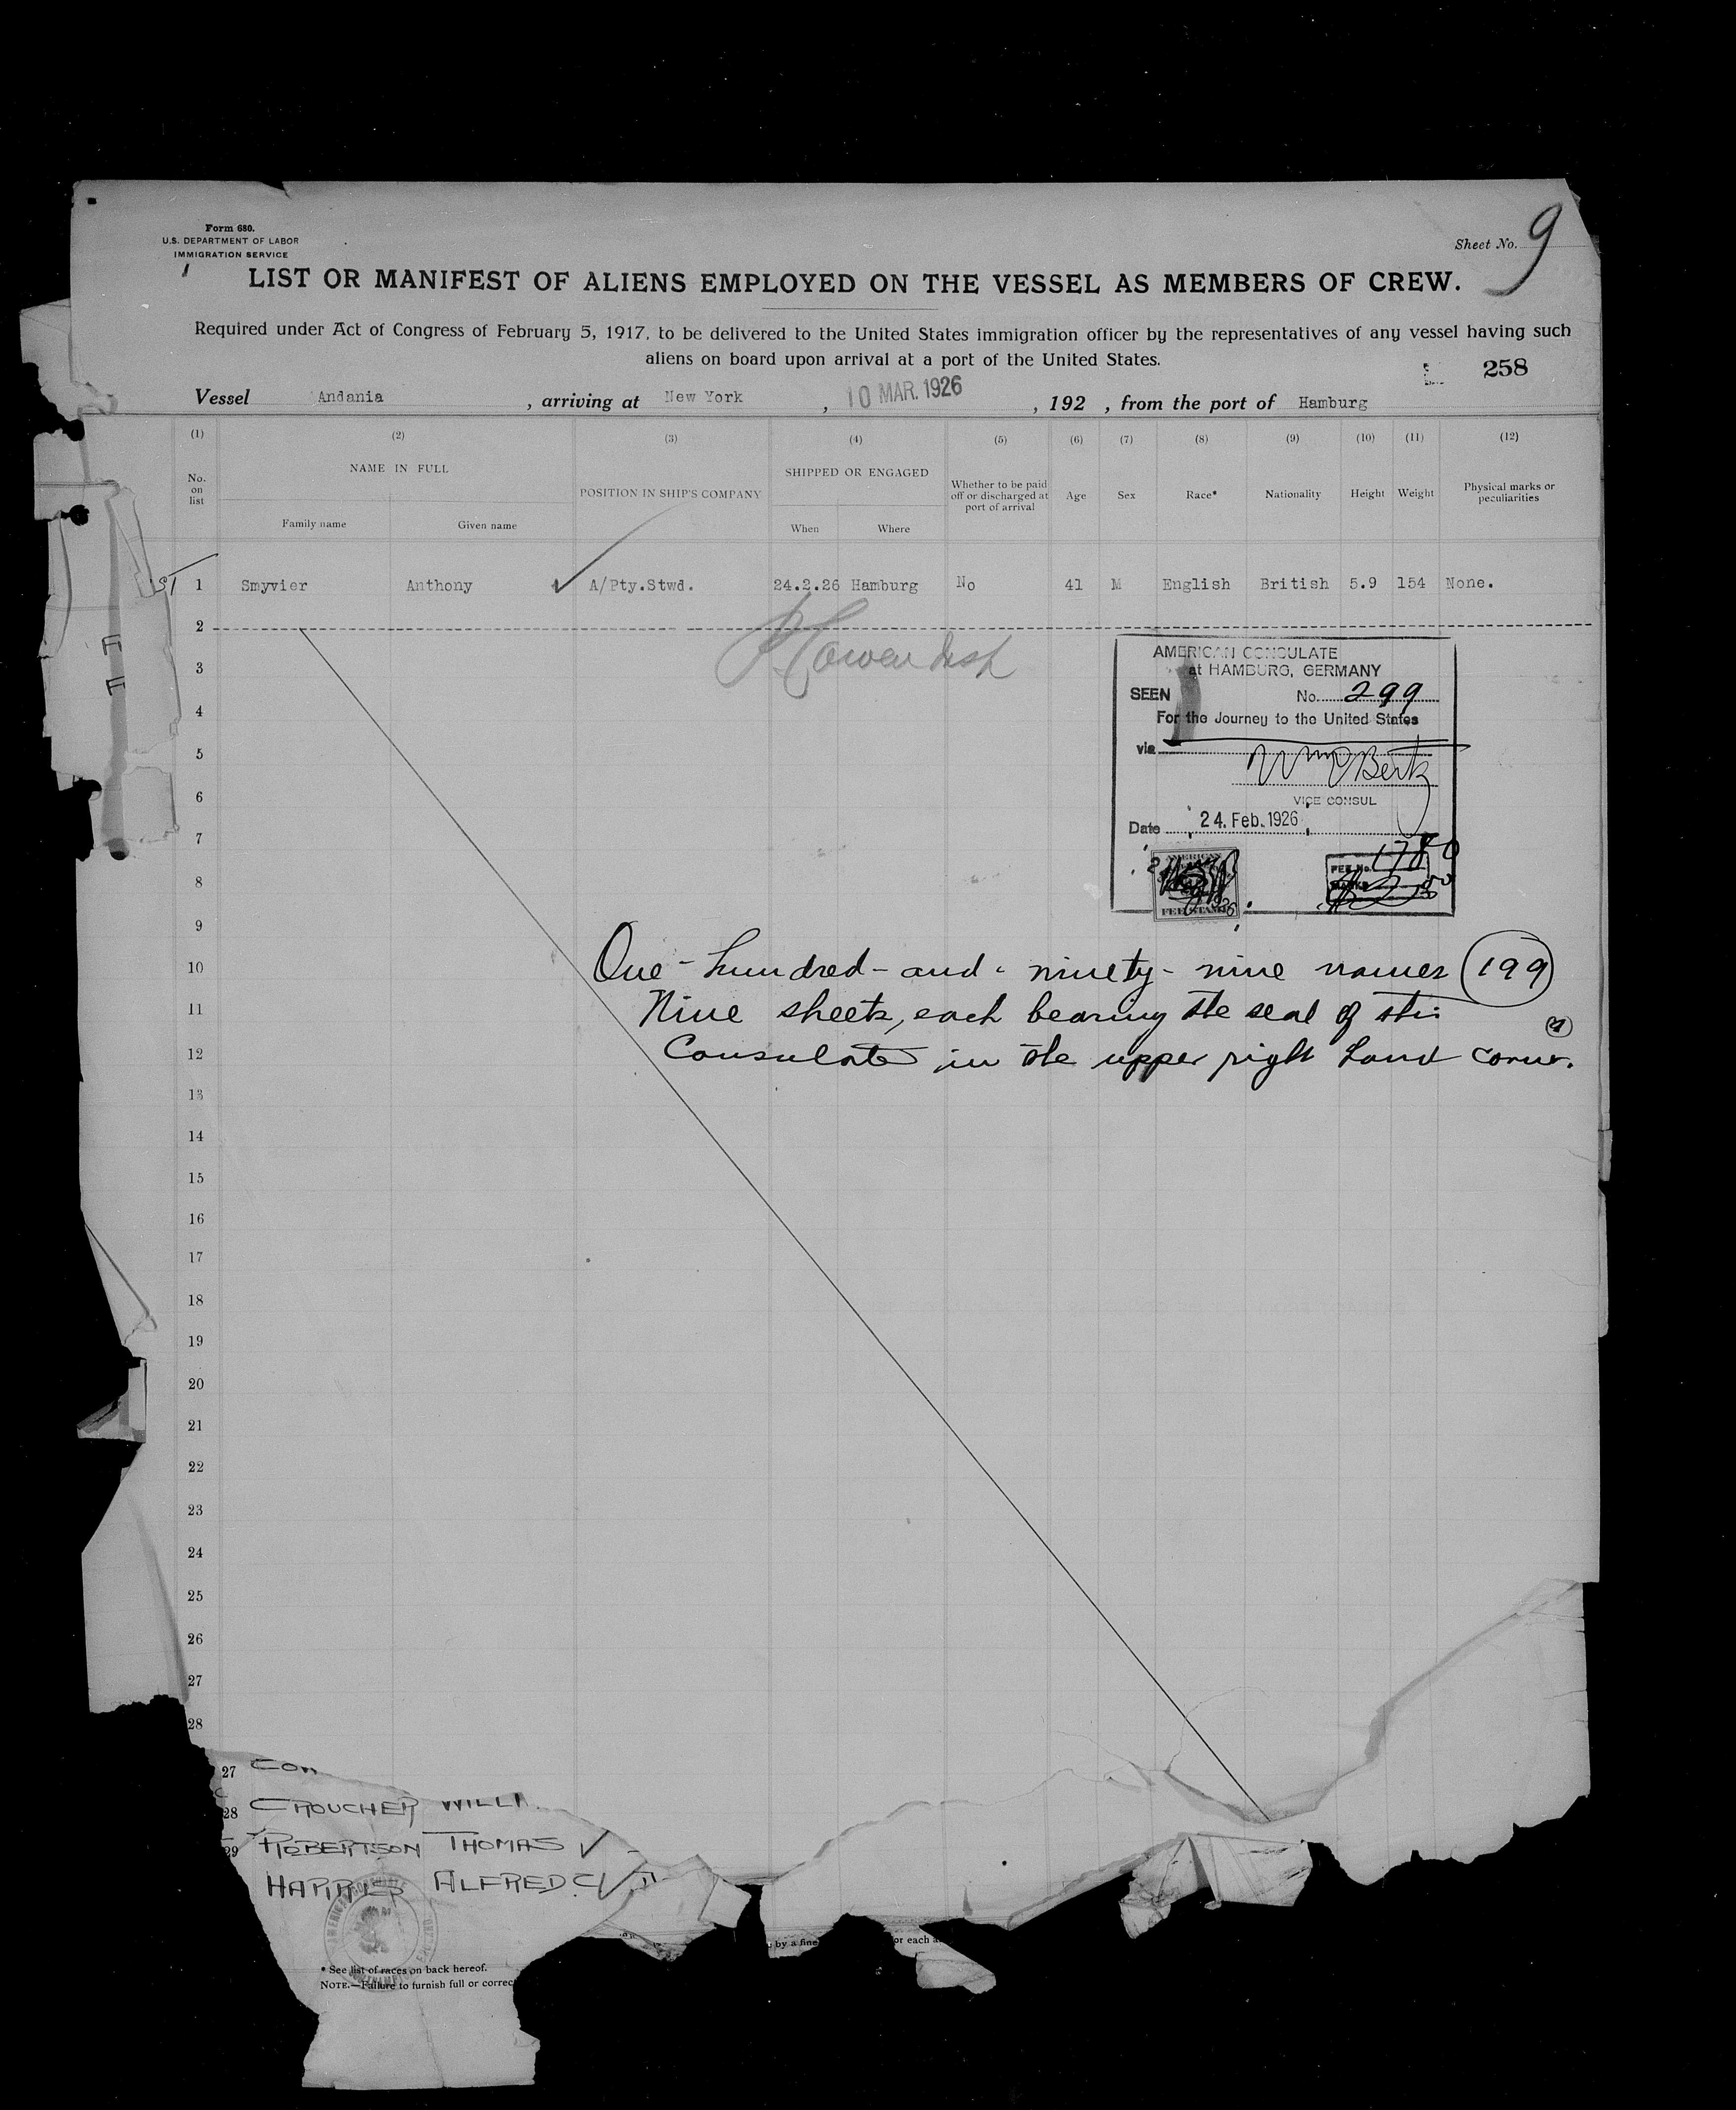 Form 680.
U.S. DEPARTMENT OF LABOR
IMMIGRATION SERVICE
Sheet No. 9
LIST OR MANIFEST OF ALIENS EMPLOYED ON THE VESSEL AS MEMBERS OF CREW.
Required under Act of Congress of February 5, 1917, to be delivered to the United States immigration officer by the representatives of any vessel having such
aliens on board upon arrival at a port of the United States.
258
Vessel Andania, arriving at New York, 10 MAR. 1926, 192 , from the port of Hamburg
(1) (2) (3) (4) (5) (6) (7) (8) (9) (10) (11) (12)
No. on list
NAME IN FULL
Family name Given name
POSITION IN SHIP'S COMPANY
SHIPPED OR ENGAGED
When Where
Whether to be paid off or discharged at port of arrival
Age Sex Race* Nationality Height Weight
Physical marks or peculiarities
1 Smyvier Anthony A/Pty.Stwd. 24.2.26 Hamburg No 41 M English British 5.9 154 None.
2
3
4
5
6
7
8
9
AMERICAN CONSULATE
at HAMBURG, GERMANY
SEEN No. 299
For the Journey to the United States
via
VICE CONSUL
Date 24. Feb. 1926
AMERICAN
FEE STAMP
FEE No. 1780
10 One-hundred-and-ninety-nine names (199)
11 Nine sheets, each bearing the seal of this
12 Consulate in the upper right hand corner.
13
14
15
16
17
18
19
20
21
22
23
24
25
26
27
28
27
28 CROUCHER
29 ROBERTSON THOMAS
HARRIS ALFRED C
by a fine
or each a
* See list of races on back hereof.
NOTE.—Failure to furnish full or correc